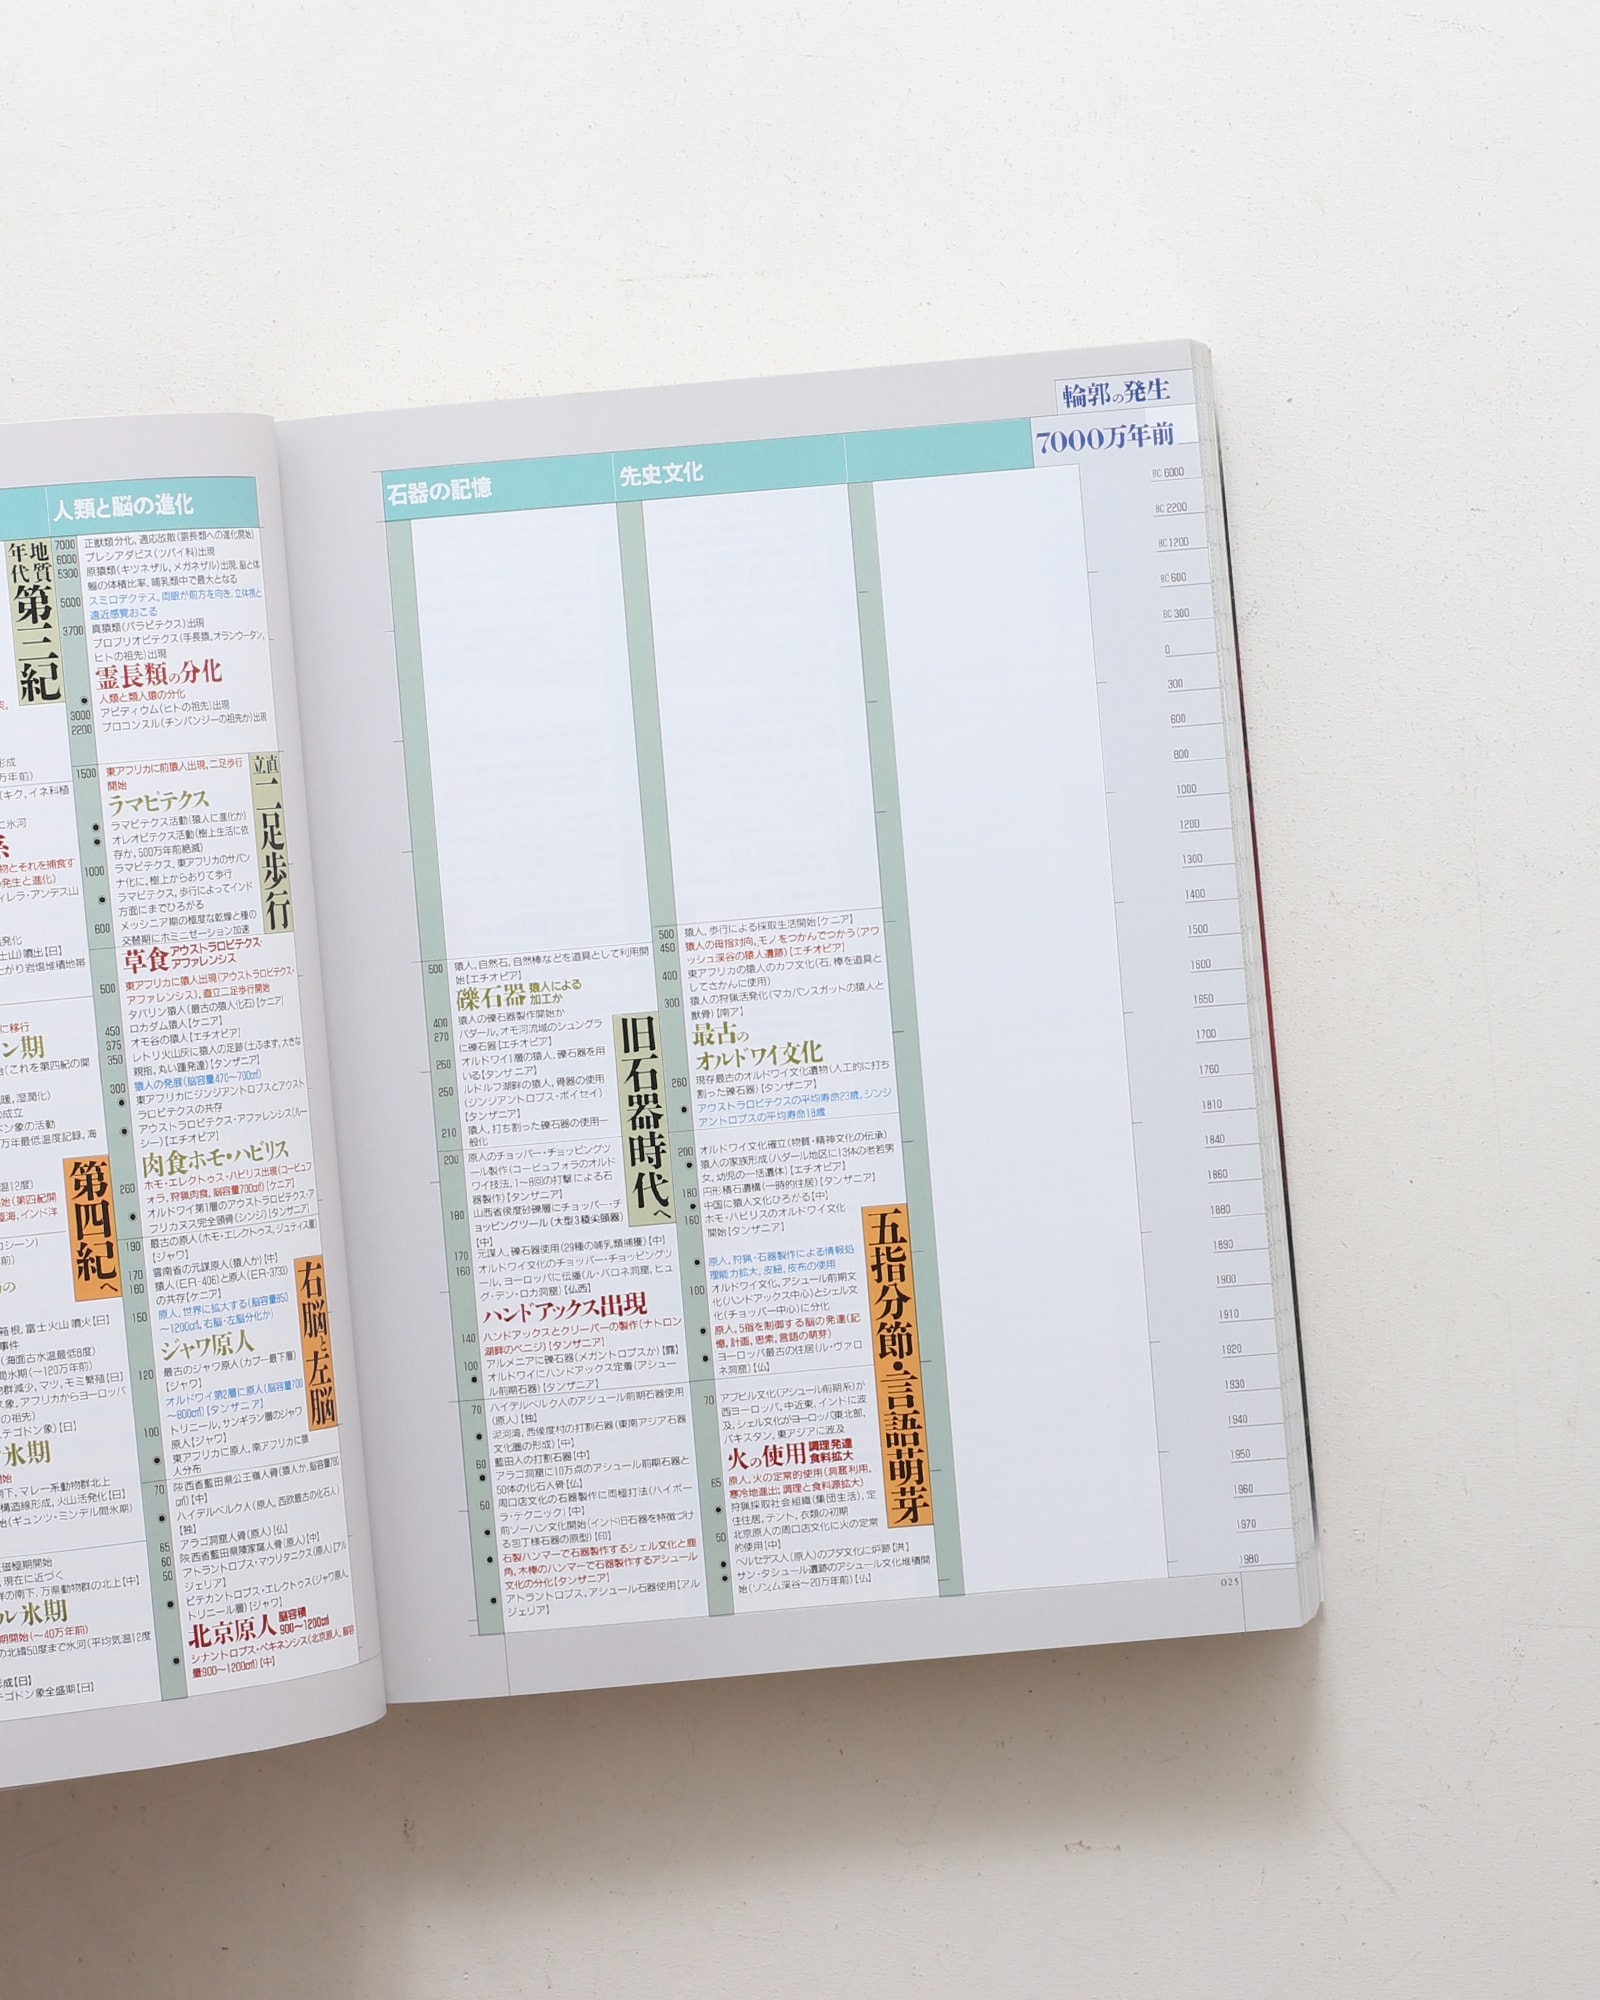 人類と脳の進化
地質年代
第三紀
7000 正獣類分化、適応放散(霊長類への進化開始)
6000 プレシアダピス(ツパイ科)出現
5300 原猿類(キツネザル、メガネザル)出現、脳と体
軀の体積比率、哺乳類中で最大となる
5000 スミロデクテス、両眼が前方を向き、立体視と
遠近感覚おこる
3700 真猿類(パラピテクス)出現
プロプリオピテクス(手長猿、オランウータン、
ヒトの祖先)出現
霊長類の分化
人類と類人猿の分化
3000 アピディウム(ヒトの祖先)出現
2200 プロコンスル(チンパンジーの祖先か)出現
1500 東アフリカに前猿人出現、二足歩行
開始
直立二足歩行
ラマピテクス
ラマピテクス活動(猿人に進化か)
オレオピテクス活動(樹上生活に依
存か、500万年前絶滅)
1000 ラマピテクス、東アフリカのサバン
ナ化に、樹上からおりて歩行
ラマピテクス、歩行によってインド
方面にまでひろがる
600 メッシニア期の極度な乾燥と種の
交替期にホミニゼーション加速
草食アウストラロピテクス・
アファレンシス
500 東アフリカに猿人出現(アウストラロピテクス・
アファレンシス)、直立二足歩行開始
タバリン猿人(最古の猿人化石)[ケニア]
450 ロカダム猿人[ケニア]
375 オモ谷の猿人[エチオピア]
350 レトリ火山灰に猿人の足跡(土ふまず、大きな
親指、丸い踵発達)[タンザニア]
300 猿人の発展(脳容量470〜700cm³)
東アフリカにジンジアントロプスとアウスト
ラロピテクスの共存
アウストラロピテクス・アファレンシス(ルー
シー)[エチオピア]
肉食ホモ・ハビリス
260 ホモ・エレクトゥス・ハビリス出現(コービュフ
ォラ、狩猟肉食、脳容量700cm³)[ケニア]
オルドワイ第1層のアウストラロピテクス・ア
フリカヌス完全頭骨(シンジ)[タンザニア]
190 最古の原人(ホモ・エレクトゥス、ジュティス層)
[ジャワ]
170 雲南省の元謀原人(猿人か)[中]
160 猿人(ER-406)と原人(ER-3733)
の共存[ケニア]
150 原人、世界に拡大する(脳容量850
〜1200cm³、右脳・左脳分化か)
右脳と左脳
ジャワ原人
120 最古のジャワ原人(カブー最下層)
[ジャワ]
オルドワイ第2層に原人(脳容量700
〜800cm³)[タンザニア]
100 トリニール、サンギラン層のジャワ
原人[ジャワ]
東アフリカに原人、南アフリカに猿
人分布
70 陝西省藍田県公王嶺人骨(猿人か、脳容量780
cm³)[中]
ハイデルベルク人(原人、西欧最古の化石人)
[独]
65 アラゴ洞窟人骨(原人)[仏]
60 陝西省藍田県陳家窩人骨(原人)[中]
50 アトラントロプス・マウリタニクス(原人)[アル
ジェリア]
ピテカントロプス・エレクトゥス(ジャワ原人、
トリニール層)[ジャワ]
北京原人 脳容積
900〜1200cm³
シナントロプス・ペキネンシス(北京原人、脳容
量900〜1200cm³)[中]
第四紀へ
石器の記憶
500 猿人、自然石、自然棒などを道具として利用開
始[エチオピア]
礫石器 猿人による
加工か
400 猿人の礫石器製作開始か
270 バダール、オモ河流域のシュングラ
に礫石器[エチオピア]
260 オルドワイ1層の猿人、礫石器を用
いる[タンザニア]
250 ルドルフ湖畔の猿人、骨器の使用
(ジンジアントロプス・ボイセイ)
[タンザニア]
210 猿人、打ち割った礫石器の使用一
般化
旧石器時代へ
200 原人のチョッパー・チョッピングツ
ール製作(コービュフォラのオルド
ワイ技法、1〜8回の打撃による石
器製作)[タンザニア]
180 山西省侯度砂礫層にチョッパー・チ
ョッピングツール(大型3稜尖頭器)
[中]
170 元謀人、礫石器使用(29種の哺乳類捕獲)[中]
160 オルドワイ文化のチョッパー・チョッピングツ
ール、ヨーロッパに伝播(ル・バロネ洞窟、ヒュ
グ・デン・ロカ洞窟)[仏西]
ハンドアックス出現
140 ハンドアックスとクリーバーの製作(ナトロン
湖畔のペニジ)[タンザニア]
100 アルメニアに礫石器(メガントロプスか)[露]
オルドワイにハンドアックス定着(アシュー
ル前期石器)[タンザニア]
70 ハイデルベルク人のアシュール前期石器使用
(原人)[独]
泥河湾、西侯度村の打割石器(東南アジア石器
文化圏の形成)[中]
60 藍田人の打割石器[中]
アラゴ洞窟に10万点のアシュール前期石器と
50体の化石人骨[仏]
50 周口店文化の石器製作に両極打法(ハイポー
ラ・テクニック)[中]
前ソーハン文化開始(インド旧石器を特徴づけ
る包丁様石器の原型)[印]
石製ハンマーで石器製作するシェル文化と鹿
角、木棒のハンマーで石器製作するアシュール
文化の分化[タンザニア]
アトラントロプス、アシュール石器使用[アル
ジェリア]
先史文化
500 猿人、歩行による採取生活開始[ケニア]
450 猿人の母指対向、モノをつかんでつかう(アワ
ッシュ渓谷の猿人遺跡)[エチオピア]
400 東アフリカの猿人のカフ文化(石、棒を道具と
してさかんに使用)
300 猿人の狩猟活発化(マカパンスガットの猿人と
獣骨)[南ア]
最古の
オルドワイ文化
260 現存最古のオルドワイ文化遺物(人工的に打ち
割った礫石器)[タンザニア]
アウストラロピテクスの平均寿命23歳、シンジ
アントロプスの平均寿命18歳
200 オルドワイ文化確立(物質・精神文化の伝承)
猿人の家族形成(ハダール地区に13体の老若男
女、幼児の一括遺体)[エチオピア]
180 円形積石遺構(一時的住居)[タンザニア]
中国に猿人文化ひろがる[中]
160 ホモ・ハビリスのオルドワイ文化
開始[タンザニア]
原人、狩猟・石器製作による情報処
理能力拡大、皮紐、皮布の使用
100 オルドワイ文化、アシュール前期文
化(ハンドアックス中心)とシェル文
化(チョッパー中心)に分化
原人、5指を制御する脳の発達(記
憶、計画、思索、言語の萌芽)
ヨーロッパ最古の住居(ル・ヴァロ
ネ洞窟)[仏]
五指分節・言語萌芽
70 アブビル文化(アシュール前期系)か
西ヨーロッパ、中近東、インドに波
及、シェル文化がヨーロッパ東北部、
パキスタン、東アジアに波及
火の使用 調理発達
食料拡大
65 原人、火の定常的使用(洞窟利用、
寒冷地進出:調理と食料源拡大)
狩猟採取社会組織(集団生活)、定
住住居、テント、衣類の初期
50 北京原人の周口店文化に火の定常
的使用[中]
ベルセデス人(原人)のブダ文化に炉跡[洪]
サン・タシュール遺跡のアシュール文化堆積開
始(ソンム渓谷〜20万年前)[仏]
輪郭の発生
7000万年前
BC 6000
BC 2200
BC 1200
BC 600
BC 300
0
300
600
800
1000
1200
1300
1400
1500
1600
1650
1700
1760
1810
1840
1860
1880
1890
1900
1910
1920
1930
1940
1950
1960
1970
1980
025